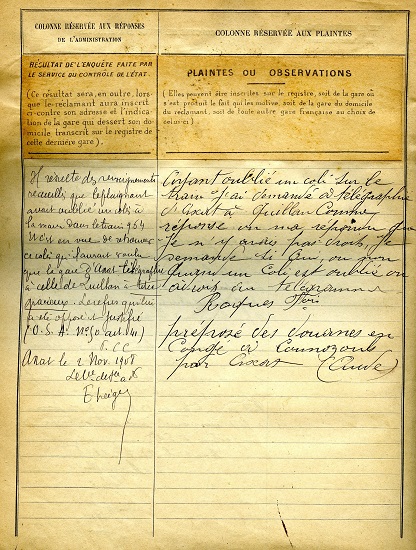 COLONNE RÉSERVÉE AUX RÉPONSES
DE L'ADMINISTRATION
RÉSULTAT DE L'ENQUÊTE FAITE PAR
LE SERVICE DU CONTROLE DE L'ÉTAT.
(Ce résultat sera, en outre, lors-
que le réclamant aura inscrit
ci-contre son adresse et l'indica-
tion de la gare qui dessert son do-
micile transcrit sur le registre de
cette dernière gare).
Il résulte des renseignements
recueillis que le plaignant
avait oublié un colis à
la main dans le train 964
c'est en vue de retrouver
ce colis qu'il aurait voulu
que la gare d'Axat télégraphie
à celle de Quillan à titre
gracieux. Le refus qui lui
a été opposé est justifié
(O.S.A. N° 50 art. 41)
Axat le 2 Nov. 1908
COLONNE RÉSERVÉE AUX PLAINTES
PLAINTES OU OBSERVATIONS
(Elles peuvent être inscrites sur le registre, soit de la gare où
s'est produit le fait qui les motive, soit de la gare du domicile
du réclamant, soit de toute autre gare française au choix de
celui-ci.)
ayant oublié un coli sur le
train j'ai demandé à télégraphier
d'Axat à Quillan Comme
réponse on ma répondu que
je n'y avais pas droit, Je
demande si Oui, ou non
lorsqu'un Coli est oublié on
a droit au télégramme
préposé des douanes en
Congé à Counozouls
par Axat (Aude)